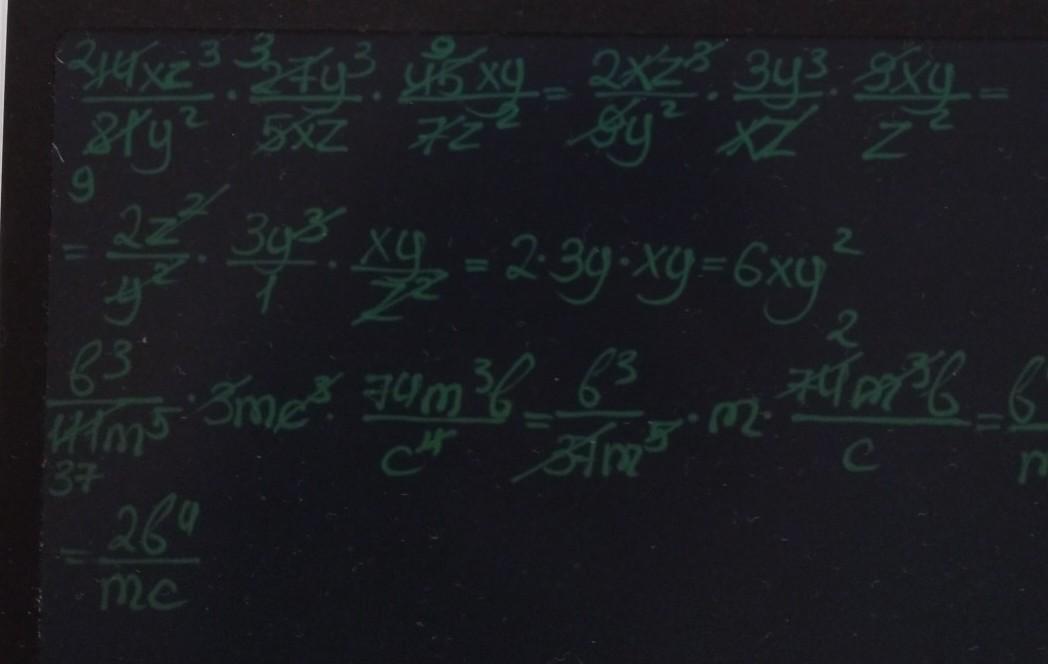 \frac{14xz^3}{81y^2} · \frac{27y^3}{5xz} · \frac{45xy}{7z^2} = \frac{2xz^3}{9y^2} · \frac{3y^3}{xz} · \frac{9xy}{z^2} =
= \frac{2z^2}{y^2} · \frac{3y^3}{1} · \frac{xy}{z^2} = 2·3y·xy = 6xy^2
\frac{b^3}{111m^5} · 3mc^3 · \frac{74m^3b}{c^4} = \frac{b^3}{37m^5} · m · \frac{74m^3b}{c} =
= \frac{2b^4}{mc}